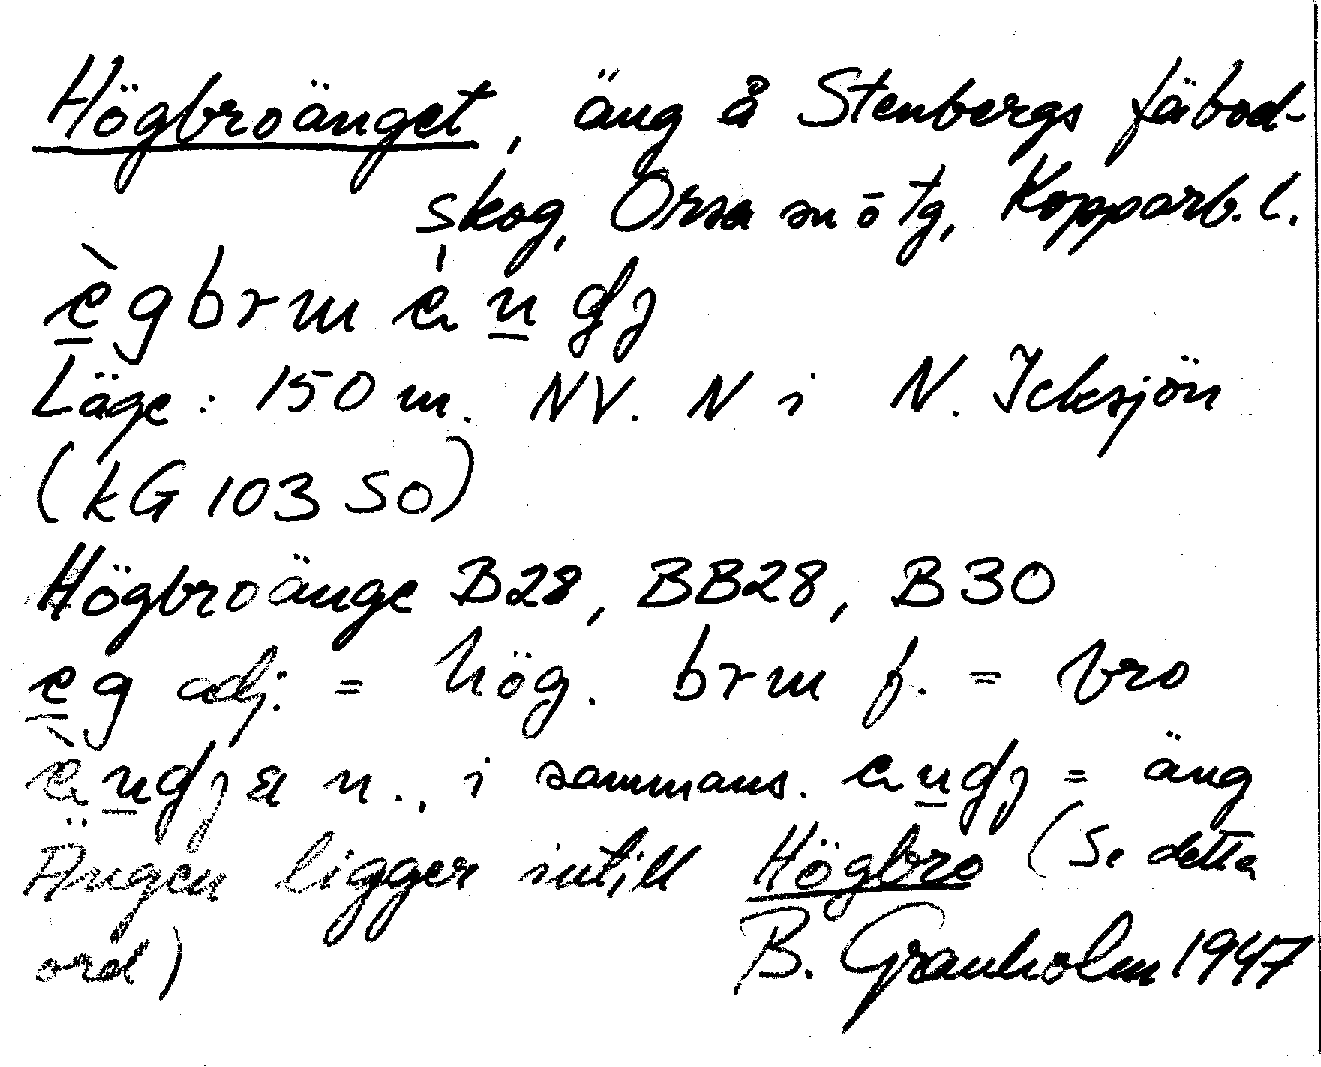 Högbroänget, äng å Stenbergs fäbod-
skog, Orsa sn ö tg, Kopparb. l.
Läge: 150 m. NV. N i N. Icksjön
(kG 103 SO)
Högbroänge B28, BB28, B30
adj. = hög. f. = bro
n., i sammans. = äng
Ängen ligger intill Högbro (Se detta
ord) B. Granholm 1947